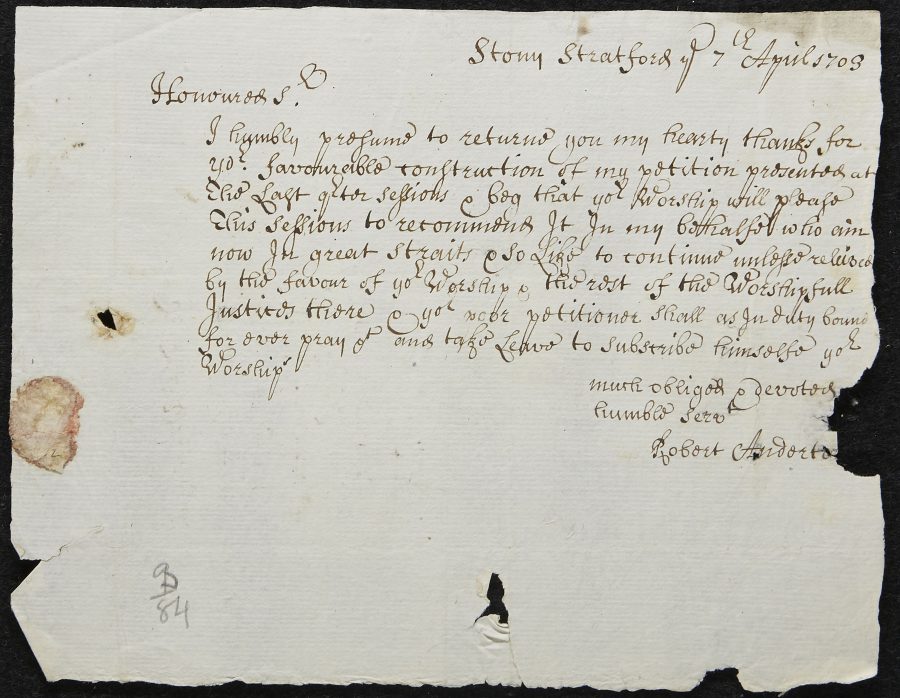 Stony Stratford ye 7th April 1703
Honoured Sr
I humbly presume to returne you my hearty thanks for
yor. favourable construction of my petition presented at
the Last qrter sessions & beg that yor Worship will please
this sessions to recommend It In my behalfe who aim
now In great straits & so Like to continue unlesse relived
by the favour of yor Worship & the rest of the Worshipfull
Justices there & yor poor petitioner shall as In duty bound
for ever pray &c and take Leave to subscribe himselfe yor
Worships
much obliged & devoted
humble servt
Robert Anderto